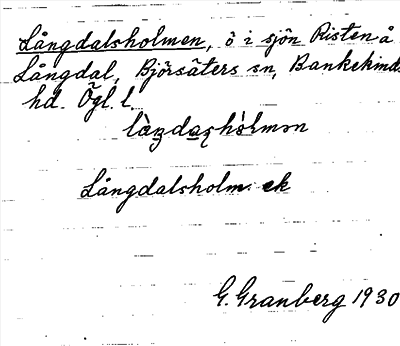 Långdalsholmen, ö i sjön Risten å
Långdal, Björsäters sn, Bankekinds
hd. Ögl. l.
Långdalsholm. ek
G. Granberg 1930